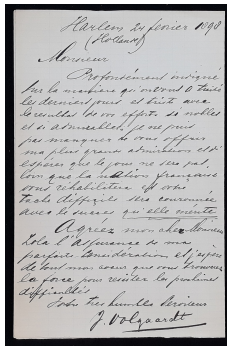 Harlem 24 fevrier 1898
(Hollande)
Monsieur
Profondément indigné
sur la manière qu'on vous a traité
les derniers jours et triste avec
le resultat de vos efforts si nobles
et si admirables, je ne puis
pas manquer de vous offrir
ma plus grande admiration et d'
espérer que le jour ne sera pas
loin que la nation française
vous rehabilitera et votre
tache difficile sera couronnée
avec le succes qu'elle merite
Agreez mon cher Monsieur
Zola l'assurance de ma
parfaite consideration et j'espère
de tout mon coeur que vous trouverez
la force pour resister les prochaines
difficultés
Votre tres humble serviteur
J. Volgaardt